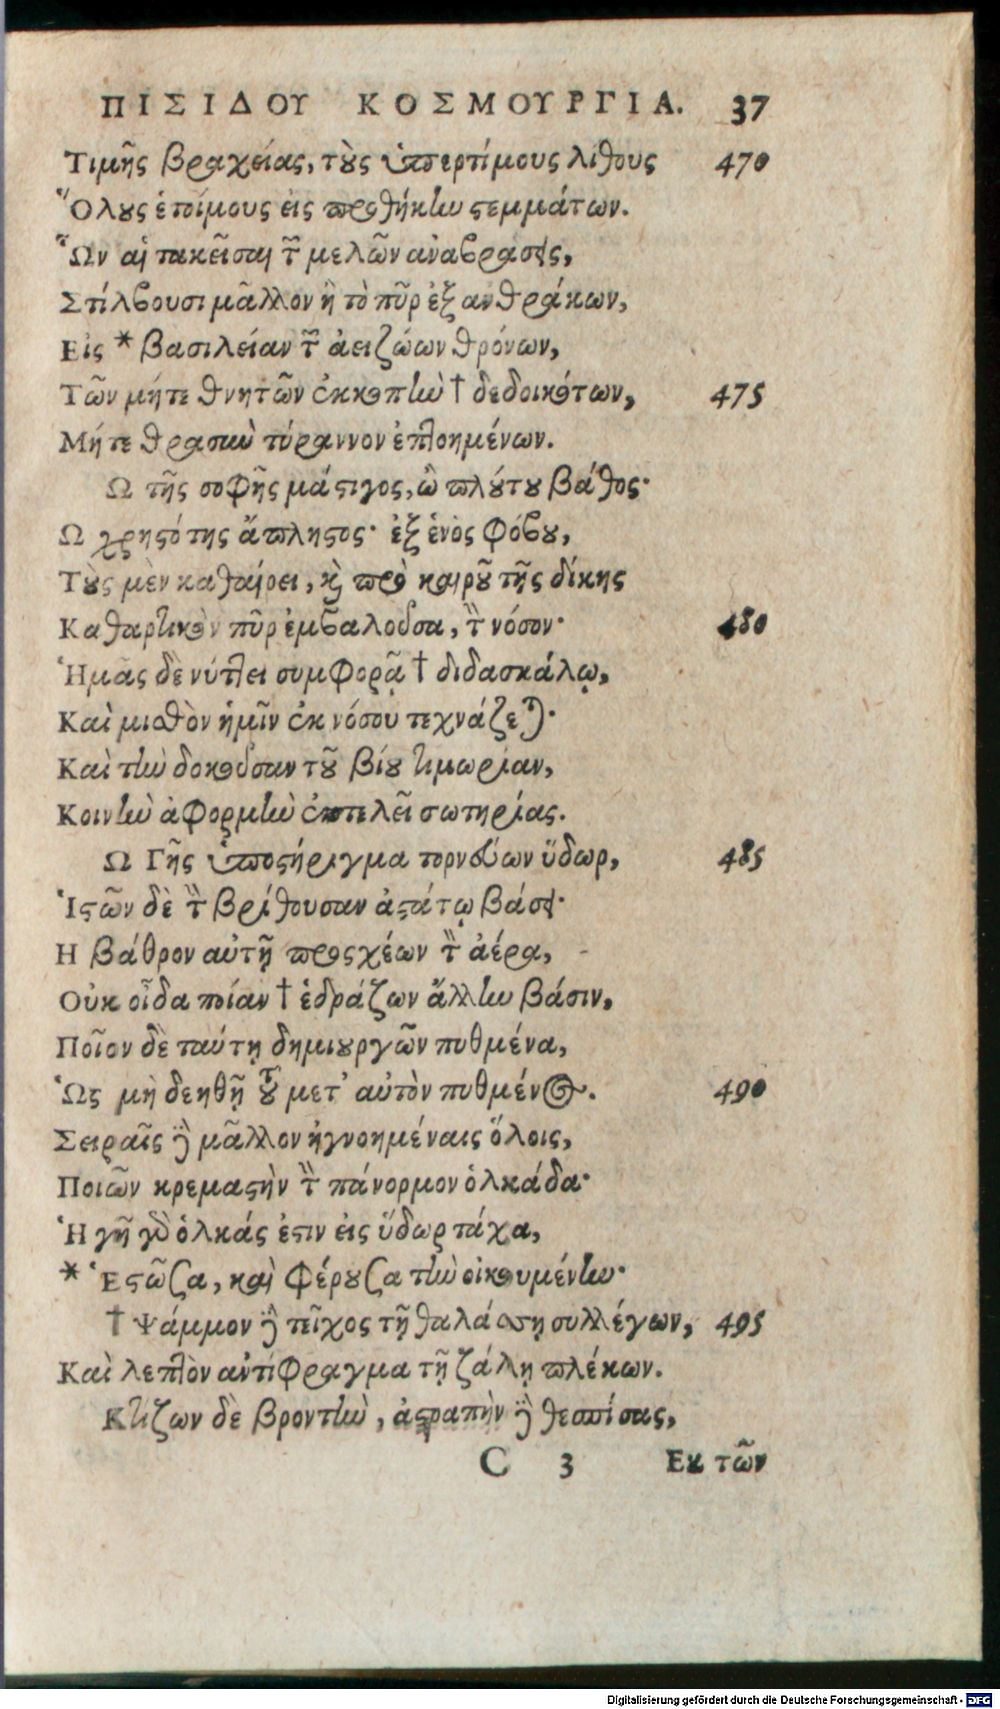 ΠΙΣΙΔΟΥ ΚΟΣΜΟΥΡΓΙΑ. 37
Τιμῆς βραχείας, τοὺς ὑπερτίμους λίθους 470
Ὅλους ἑτοίμους εἰς προσθήκην στεμμάτων.
Ὧν αἱ τακεῖσαι τῶν μελῶν ἀναβράσεις,
Στίλβουσι μᾶλλον ἢ τὸ πῦρ ἐξ ἀνθράκων,
Εἰς * βασιλείαν τῶν ἀειζώων θρόνων,
Τῶν μήτε θνητῶν ἐκκοπὴν † δεδοικότων, 475
Μήτε θρασὺν τύραννον ἐπτοημένων.
Ω τῆς σοφῆς μάστιγος, ὢ πλούτου βάθος·
Ω χρηστότης ἄπληστος· ἐξ ἑνὸς φόβου,
Τοὺς μὲν καθαίρει, καὶ πρὸ καιροῦ τῆς δίκης
Καθαρτικὸν πῦρ ἐμβαλοῦσα, τὴν νόσον· 480
Ἡμᾶς δὲ νύττει συμφορᾷ † διδασκάλῳ,
Καὶ μισθὸν ἡμῖν ἐκ νόσου τεχνάζεται·
Καὶ τὴν δοκοῦσαν τοῦ βίου τιμωρίαν,
Κοινὴν ἀφορμὴν ἐκτελεῖ σωτηρίας.
Ω Γῆς ὑποστήριγμα τορνεύων ὕδωρ, 485
Ἱστῶν δὲ τὴν βρίθουσαν ἀστάτῳ βάσει·
Η βάθρον αὐτῇ προσχέων τὸν ἀέρα,
Οὐκ οἶδα ποίαν † ἑδράζων ἄλλην βάσιν,
Ποῖον δὲ ταύτῃ δημιουργῶν πυθμένα,
Ὡς μὴ δεηθῇ τοῦ μετ' αὐτὸν πυθμένος. 490
Σειραῖς δὲ μᾶλλον ἠγνοημέναις ὅλοις,
Ποιῶν κρεμαστὴν τὴν πάνορμον ὁλκάδα·
Ἡ γῆ γὰρ ὁλκάς ἐστιν εἰς ὕδωρ τάχα,
* Ἑστῶσα, καὶ φέρουσα τὴν οἰκουμένην·
† Ψάμμον δὲ τεῖχος τῇ θαλάσσῃ συλλέγων, 495
Καὶ λεπτὸν ἀντίφραγμα τῇ ζάλῃ πλέκων.
Κτίζων δὲ βροντὴν, ἀστραπὴν δὲ θεσπίσας,
C 3 Εκ τῶν
Digitalisierung gefördert durch die Deutsche Forschungsgemeinschaft - DFG